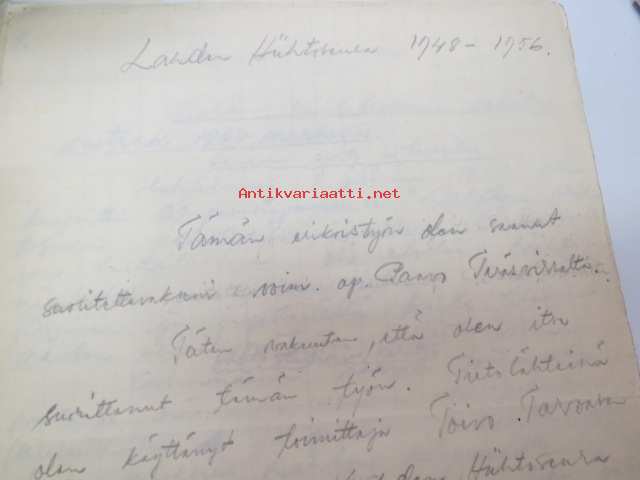 Lahden Hiihtoseura 1948 - 1956.
Antikvariaatti.net
Tämän erikoistyön olen saanut
suoritettavakseni voim. op. Paavo
Täten vakuutan, että olen itse
suorittanut tämän työn. Tietolähteinä
olen käyttänyt toimittaja Toivo
Hiihtoseura